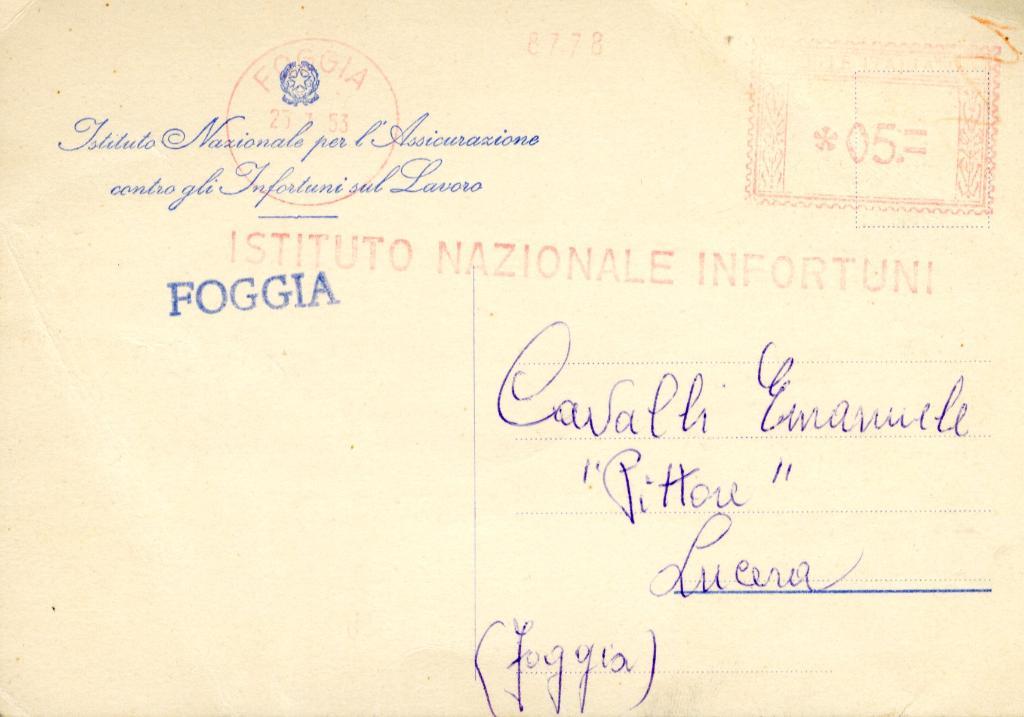 8778
FOGGIA
53
* 05.=
Istituto Nazionale per l'Assicurazione
contro gli Infortuni sul Lavoro
ISTITUTO NAZIONALE INFORTUNI
FOGGIA
Cavalli Emanuele
"Pittore"
Lucera
(Foggia)